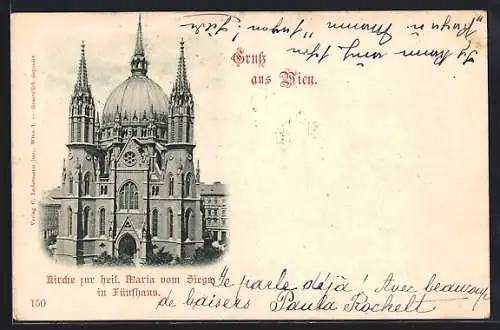 Gruß
aus Wien.
Verlag C. Ledermann jun., Wien I. — Gesetzlich deponirt
Kirche zur heil. Maria vom Siege
in Fünfhaus.
150
Je parle déjà! Avec beaucoup
de baisers Paula Rockelt